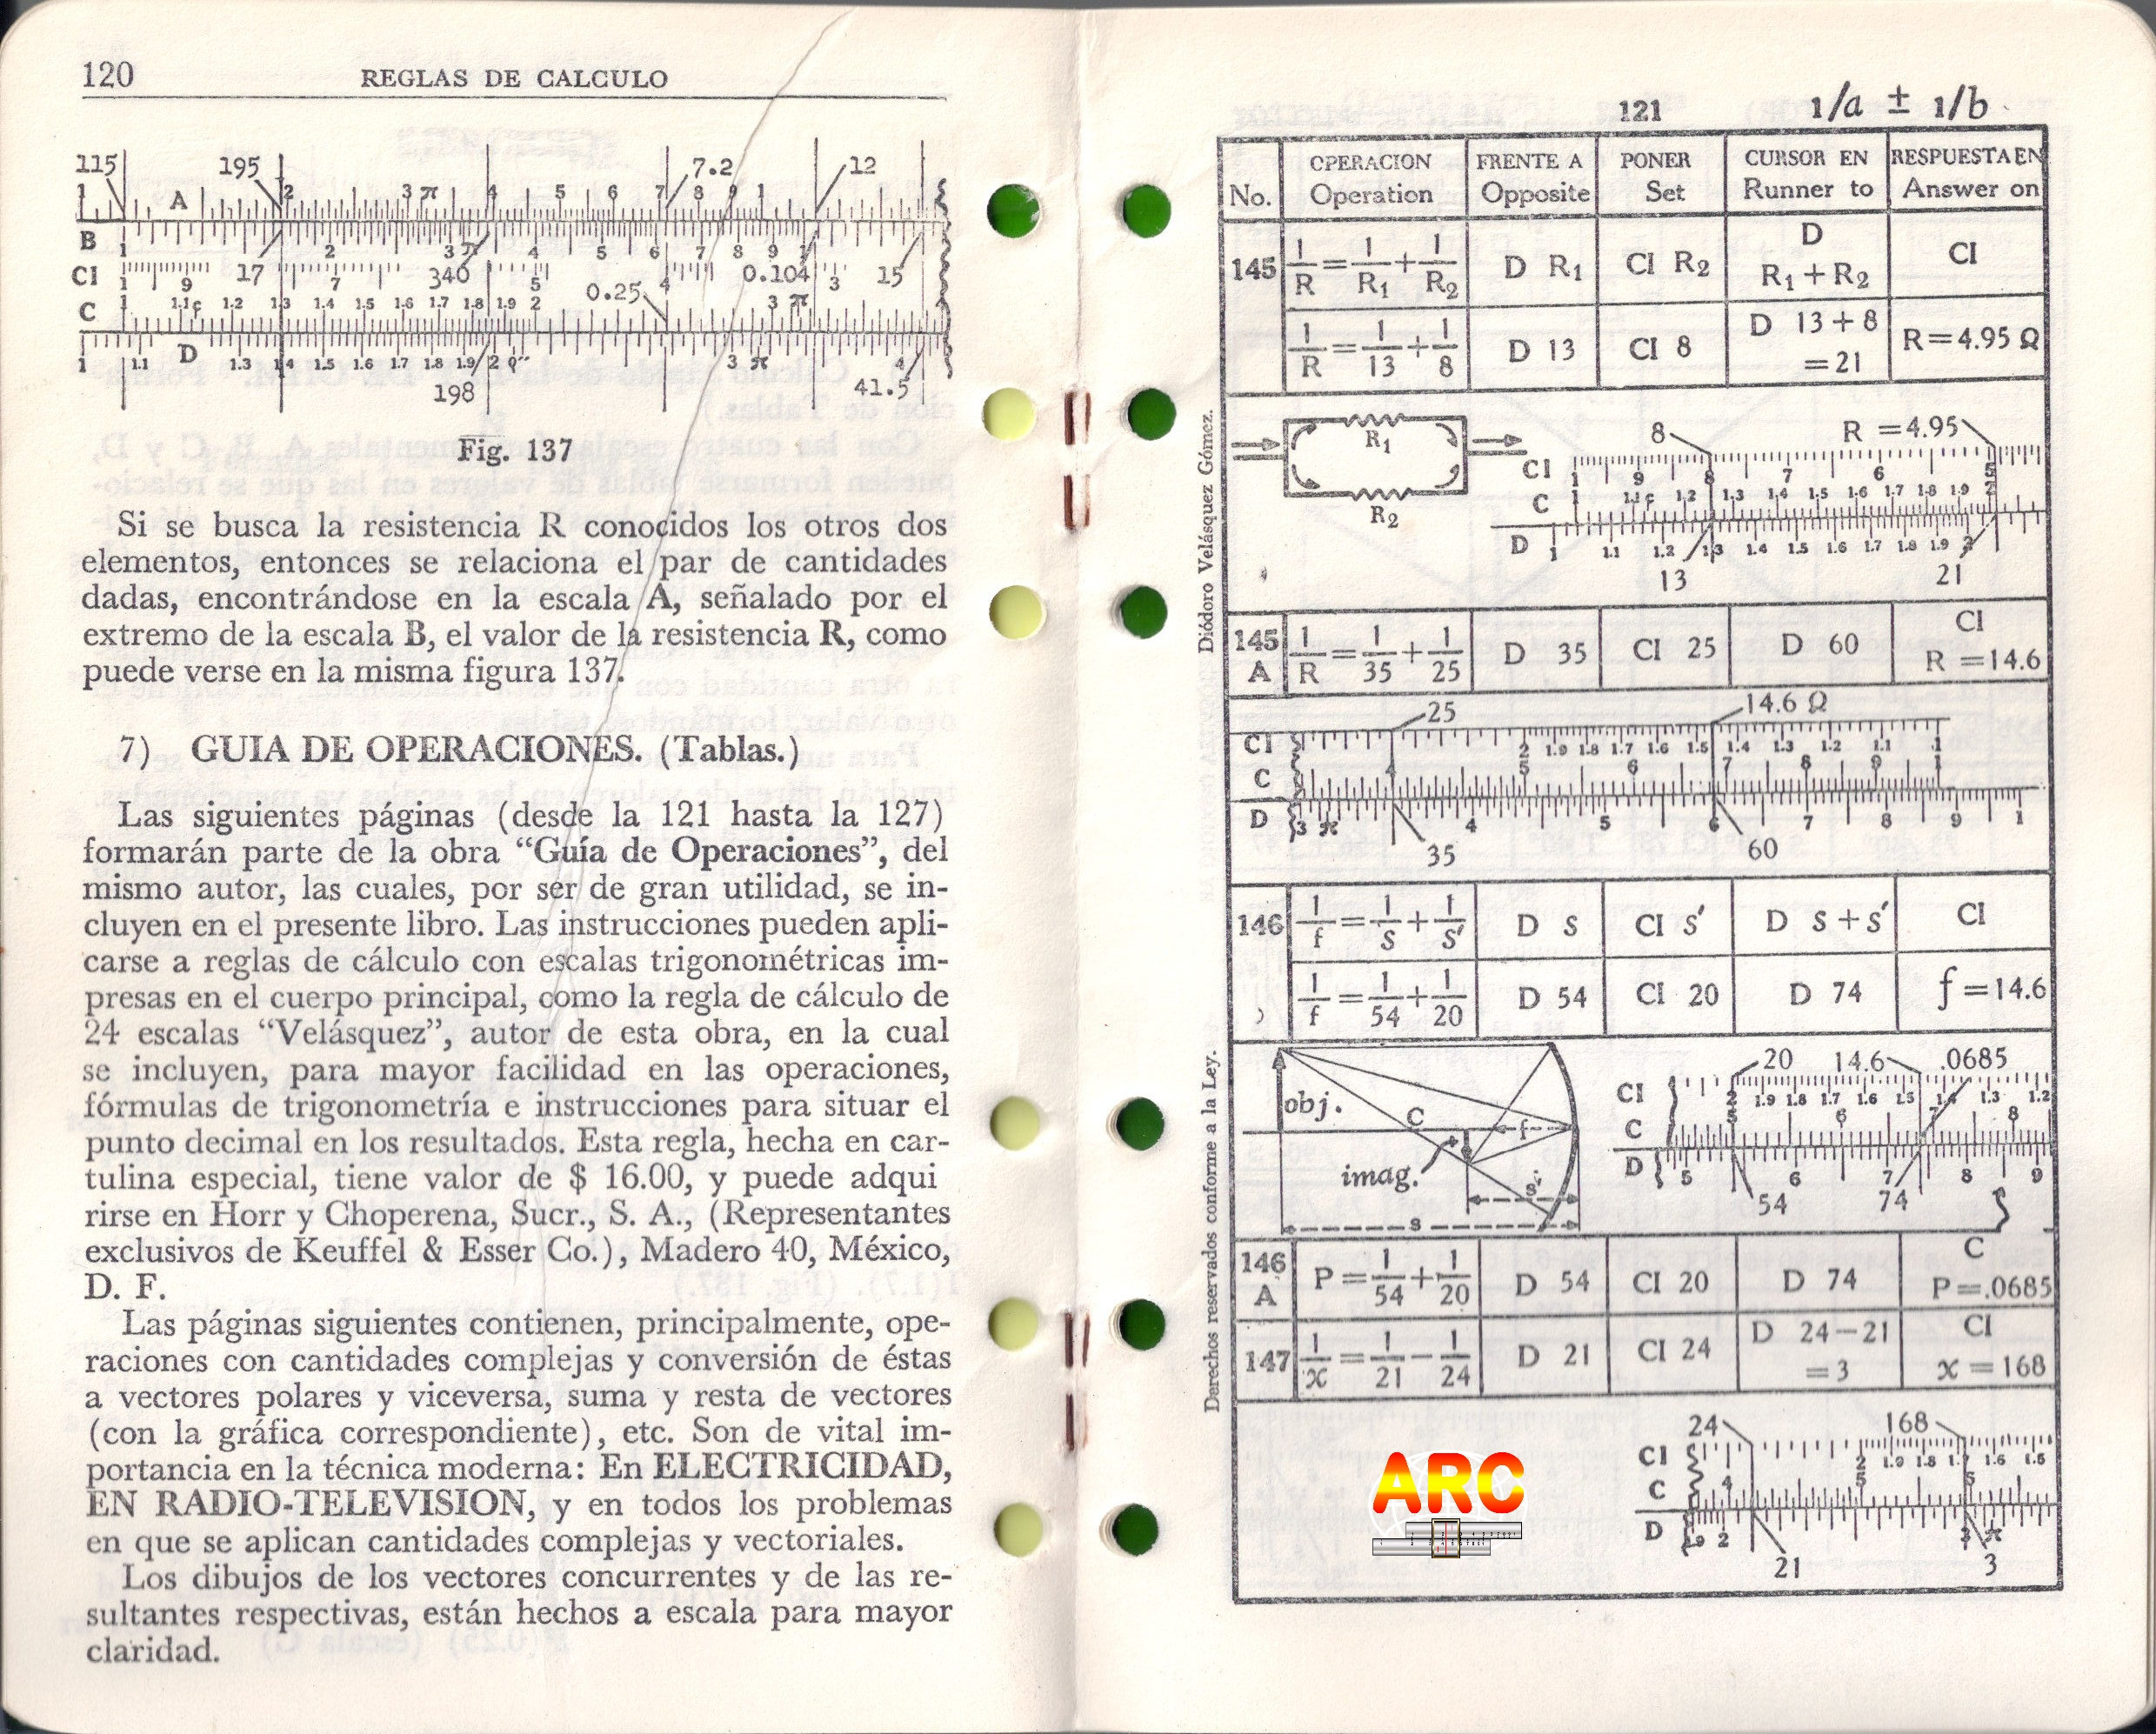 120 REGLAS DE CALCULO
115 195 7.2 12
1 A 2 3 π 4 5 6 7 8 9 1
B 1 2 3 π 4 5 6 7 8 9 1
CI 9 17 7 340 5 4 0.104 3 15
C 1 1.1 c 1.2 1.3 1.4 1.5 1.6 1.7 1.8 1.9 2 0.25 3 π
D 1 1.1 1.3 1.4 1.5 1.6 1.7 1.8 1.9 2 3 π 4
198 41.5
Fig. 137
Si se busca la resistencia R conocidos los otros dos
elementos, entonces se relaciona el par de cantidades
dadas, encontrándose en la escala A, señalado por el
extremo de la escala B, el valor de la resistencia R, como
puede verse en la misma figura 137.
7) GUIA DE OPERACIONES. (Tablas.)
Las siguientes páginas (desde la 121 hasta la 127)
formarán parte de la obra “Guía de Operaciones”, del
mismo autor, las cuales, por ser de gran utilidad, se in-
cluyen en el presente libro. Las instrucciones pueden apli-
carse a reglas de cálculo con escalas trigonométricas im-
presas en el cuerpo principal, como la regla de cálculo de
24 escalas “Velásquez”, autor de esta obra, en la cual
se incluyen, para mayor facilidad en las operaciones,
fórmulas de trigonometría e instrucciones para situar el
punto decimal en los resultados. Esta regla, hecha en car-
tulina especial, tiene valor de $ 16.00, y puede adqui
rirse en Horr y Choperena, Sucr., S. A., (Representantes
exclusivos de Keuffel & Esser Co.), Madero 40, México,
D. F.
Las páginas siguientes contienen, principalmente, ope-
raciones con cantidades complejas y conversión de éstas
a vectores polares y viceversa, suma y resta de vectores
(con la gráfica correspondiente), etc. Son de vital im-
portancia en la técnica moderna: En ELECTRICIDAD,
EN RADIO-TELEVISION, y en todos los problemas
en que se aplican cantidades complejas y vectoriales.
Los dibujos de los vectores concurrentes y de las re-
sultantes respectivas, están hechos a escala para mayor
claridad.
121 1/a ± 1/b
No. OPERACION Operation FRENTE A Opposite PONER Set CURSOR EN Runner to RESPUESTA EN Answer on
145 1/R = 1/R₁ + 1/R₂ D R₁ CI R₂ D R₁ + R₂ CI
1/R = 1/13 + 1/8 D 13 CI 8 D 13 + 8 = 21 R = 4.95 Ω
R₁ R₂
8 R = 4.95
CI 1 9 8 7 6 5
C 1 1.1 c 1.2 1.3 1.4 1.5 1.6 1.7 1.8 1.9 2
D 1 1.1 1.2 1.3 1.4 1.5 1.6 1.7 1.8 1.9 2
13 21
145 A 1/R = 1/35 + 1/25 D 35 CI 25 D 60 CI R = 14.6
25 14.6 Ω
CI 2 1.9 1.8 1.7 1.6 1.5 1.4 1.3 1.2 1.1 .1
C 4 5 6 7 8 9 1
D 3 π 4 5 6 7 8 9 1
35 60
146 1/f = 1/S + 1/S′ D S CI S′ D S + S′ CI
1/f = 1/54 + 1/20 D 54 CI 20 D 74 f = 14.6
obj. C f imag. s' s
20 14.6 .0685
CI 2 1.9 1.8 1.7 1.6 1.5 1.4 1.3 1.2
C 5 6 7 8
D 5 6 7 8 9
54 74
146 A P = 1/54 + 1/20 D 54 CI 20 D 74 C P = .0685
147 1/x = 1/21 − 1/24 D 21 CI 24 D 24 − 21 = 3 CI x = 168
24 168
CI 2 1.9 1.8 1.7 1.6 1.5
C 4 5
D 1.9 2 3 π
21 3
ARC
Diódoro Velásquez Gómez.
Derechos reservados conforme a la Ley.